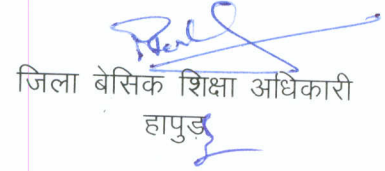 जिला बेसिक शिक्षा अधिकारी
हापुड़